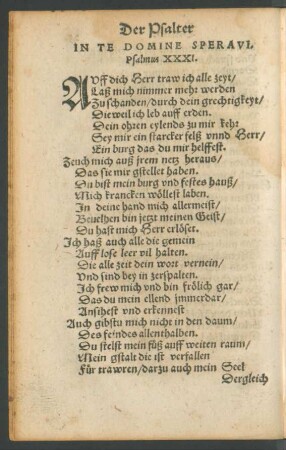 Der Psalter
IN TE DOMINE SPERAVI,
Psalmus XXXI.
AUff dich Herr traw ich alle zeyt/
Laß mich nimmer mehr werden
Zu schanden/durch dein grechtigkeyt/
Dieweil ich leb auff erden.
Dein ohren eylends zu mir kehr
Sey mir ein starcker felß vnnd Herr/
Ein burg das du mir helffest.
Zeuch mich auß jrem netz heraus/
Das sie mir gstellet haben.
Du bist mein burg vnd festes hauß/
Mich krancken wöllest laben.
In deine hand mich allermeist/
Beuelhen bin jetzt meinen Geist/
Du hast mich Herr erlöset.
Ich haß auch alle die gemein
Auff lose leer vil halten.
Die alle zeit dein wort vernein/
Vnd sind bey in zerspalten.
Ich frew mich vnd bin frölich gar/
Das du mein ellend jmmerdar/
Ansihest vnd erkennest
Auch gibstu mich nicht in den daum/
Des feindes allenthalben.
Du stelst mein füß auff weiten raum/
Mein gstalt die ist verfallen
Für trawren/darzu auch mein Seel
Dergleich